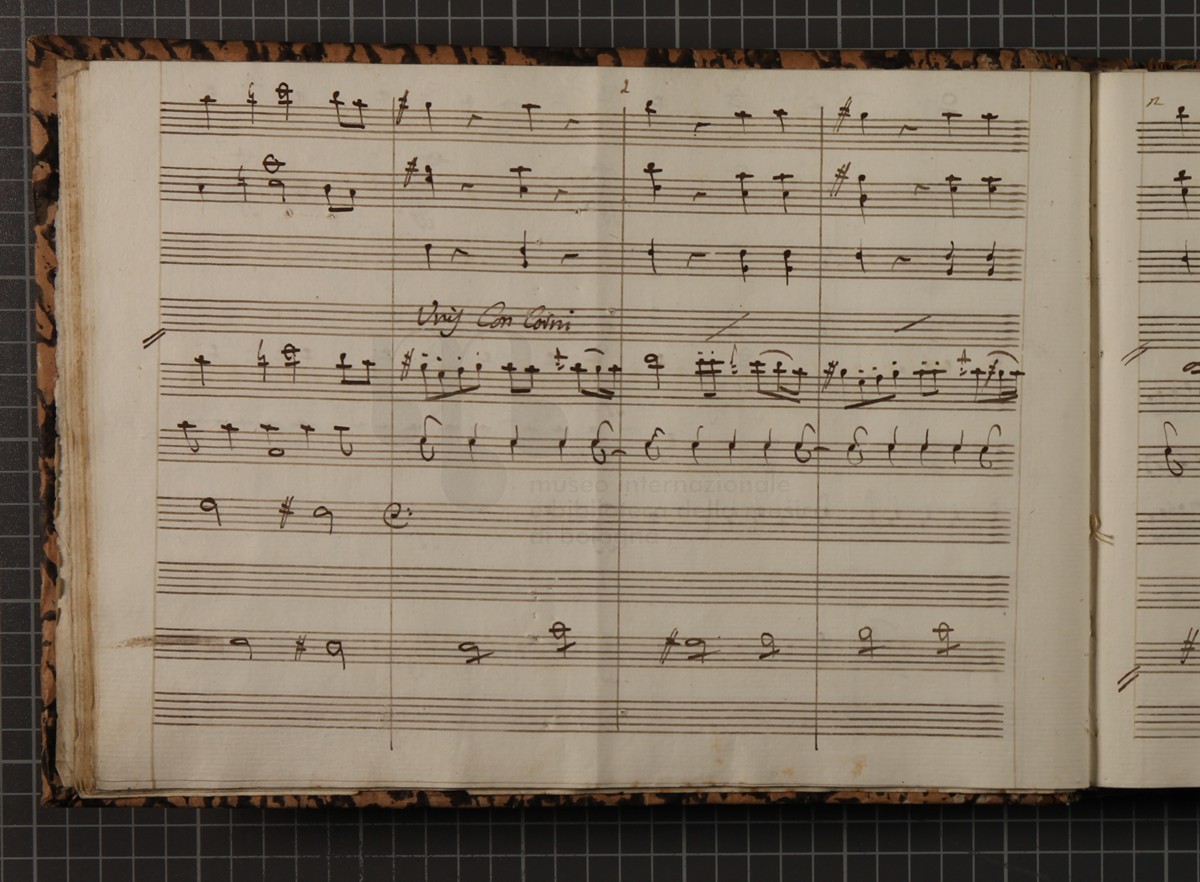 2
Unis Con Corni
museo internazionale
e biblioteca della musica
di bologna